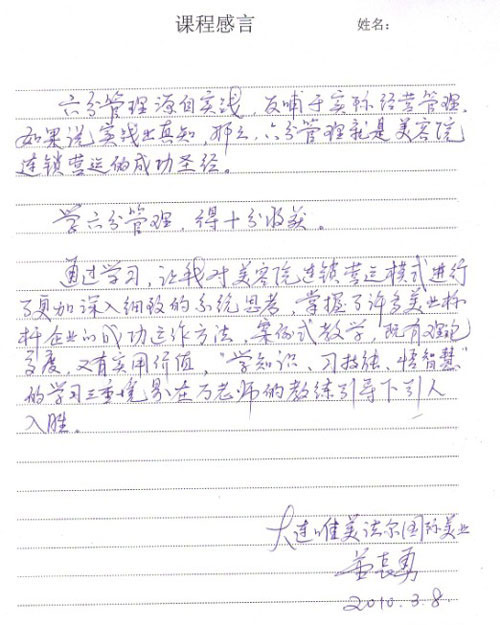 课程感言 姓名：
六分管理源自实践，反哺于实际经营管理.
如果说实践出真知，那么，六分管理就是美容院
连锁营运的成功圣经。
学六分管理，得十分收获。
通过学习，让我对美容院连锁营运模式进行
了更加深入细致的系统思考，掌握了许多美业标
杆企业的成功运作方法，案例式教学，既有理论
高度，又有实用价值，“学知识、习技能、悟智慧”
的学习三重境界在万老师的教练引导下引人
入胜。
大连唯美法尔国际美业
长勇
2010.3.8.